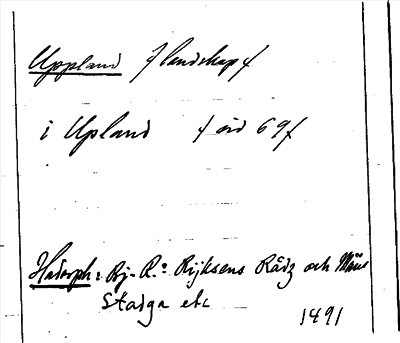 Uppland f landskap f
i Upland f óid 69 f
Hadorph: Bj. R.: Rijksens Rådz och Mäns
Stadga etc
1491